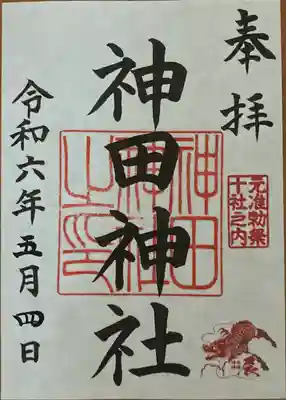 奉拝
元准勅祭
十社之内
神田神社
神田
神社
之印
令和六年五月四日